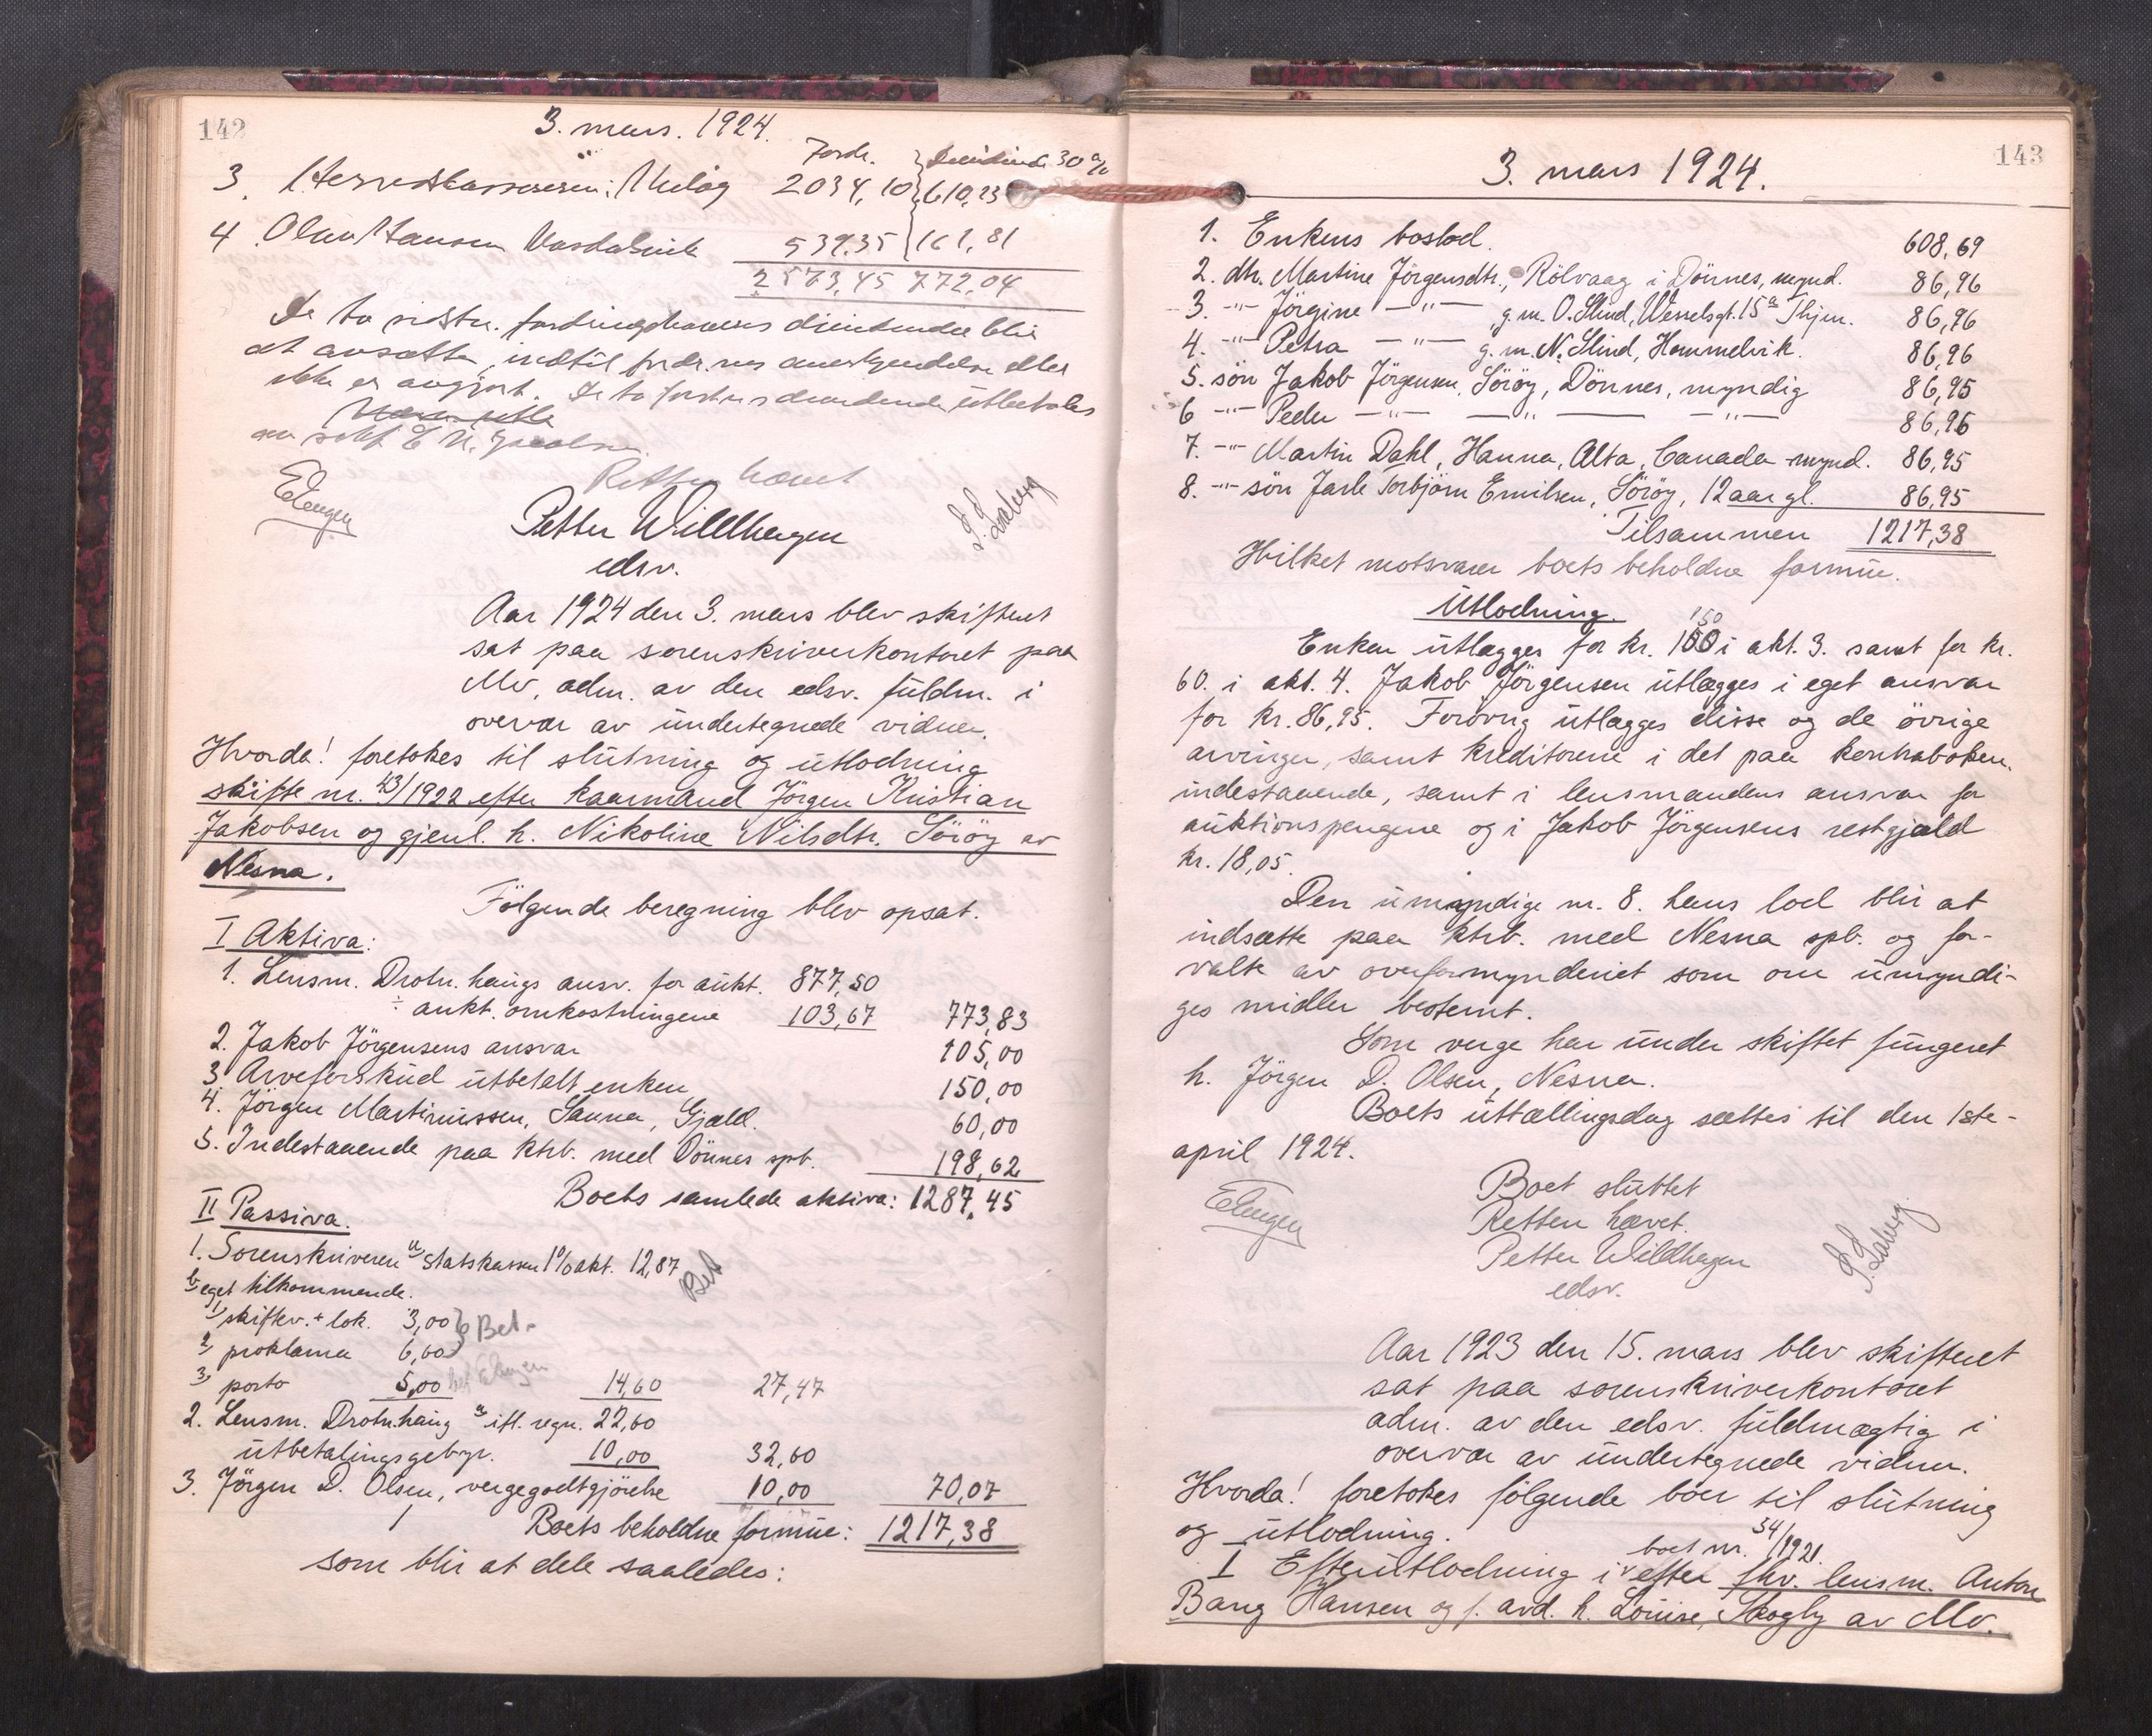 142
3. mars. 1924.
Fordr. Dividende 30%
3. Herredskassereren: 2034,10 610,23
4. Olav Hansen 539.35 161,81
2573,45 772,04
De to sidstn. fordringshaveres dividende blir
at avsætte, indtil fordr.nes anerkjendelse eller
ikke er avgjort. De to førstes dividende utbetales
Retten hævet
Petter Willdhagen
edsv.
Aar 1924 den 3. mars blev skifteret
sat paa sorenskriverkontoret paa
Mo, adm. av den edsv. fuldm. i
overvær av undertegnede vidner.
Hvorda! foretokes til slutning og utlodning
skifte nr. 43/1922 efter kaarmand Jörgen Kristian
Jakobsen og gjenl. h. Nikoline Nilsdtr. Sörøy av
Nesna.
Følgende beregning blev opsat.
I Aktiva:
1. Lensm. Drotn.haugs ansv. for aukt. 877,50
÷ aukt. omkostningene 103,67 773,83
2. Jakob Jörgensens ansvar 105,00
3. Arveforskud utbetalt enken 150,00
4. Jörgen Martinussen, Sanna, Gjæld. 60,00
5. Indestaaende paa ktrb. med Dönnes spb. 198,62
Boets samlede aktiva: 1287,45
II Passiva.
1. Sorenskriveren a) Statskassen 1% akt. 12,87 Bet
b) eget tilkommende.
1) skiftev. + lok. 3,00 Bet.
2) proklama 6,60
3) porto 5,00 14,60 27,47
2. Lensm. Drotn.haug ifl. regn. 22,60
utbetalingsgebyr. 10,00 32,60
3. Jörgen D. Olsen, vergegodtgjörelse 10,00 70,07
Boets beholdne formue: 1217,38
som blir at dele saaledes:
143
3. mars 1924.
1. Enkens boslod. 608,69
2. dtr. Martine Jörgensdtr., Rölvaag i Dönnes, mynd. 86,96
3. -"- Jörgine -"- g.m. O. Slind, Wesselsgt. 15a Thjm. 86,96
4. -"- Petra -"- g.m. N. Slind, Hommelvik. 86,96
5. sön Jakob Jörgensen, Sörøy, Dönnes, myndig 86,95
6 -"- Peder -"- -"- -"- 86,96
7. -"- Martin Dahl, Hanna, Alta, Canada mynd. 86,95
8. -"- sön Jarle Torbjörn Emilsen, Sörøy, 12 aar gl. 86,95
Tilsammen 1217,38
Hvilket motsvarer boets beholdne formue.
Utlodning.
150
Enken utlægges for kr. 100 i akt. 3. samt for kr.
60. i akt. 4. Jakob Jörgensen utlægges i eget ansvar
for kr. 86,95. Forövrig utlægges disse og de övrige
arvinger, samt kreditorene i det paa kontraboken
indestaaende, samt i lensmandens ansvar for
auktionspengene og i Jakob Jörgensens restgjæld
kr. 18,05.
Den umyndige nr. 8. hans lod blir at
indsætte paa ktrb. med Nesna spb. og for-
valte av overformynderiet som om umyndi-
ges midler bestemt.
Som verge har under skiftet fungeret
h. Jörgen D. Olsen, Nesna.
Boets uttællingsdag sættes til den 1ste-
april 1924.
Boet sluttet
Retten hævet.
Petter Willdhagen
edsv.
Aar 1923 den 15. mars blev skifteret
sat paa sorenskriverkontoret
adm. av den edsv. fuldmægtig i
overvær av undertegnede vidner.
Hvorda! foretokes følgende boer til slutning
og utlodning.
boet nr. 34/1921.
I Efterutlodning i efter fhv. lensm. Anton
Bang Hansen og f. avd. h. Louise, Skogly av Mo.